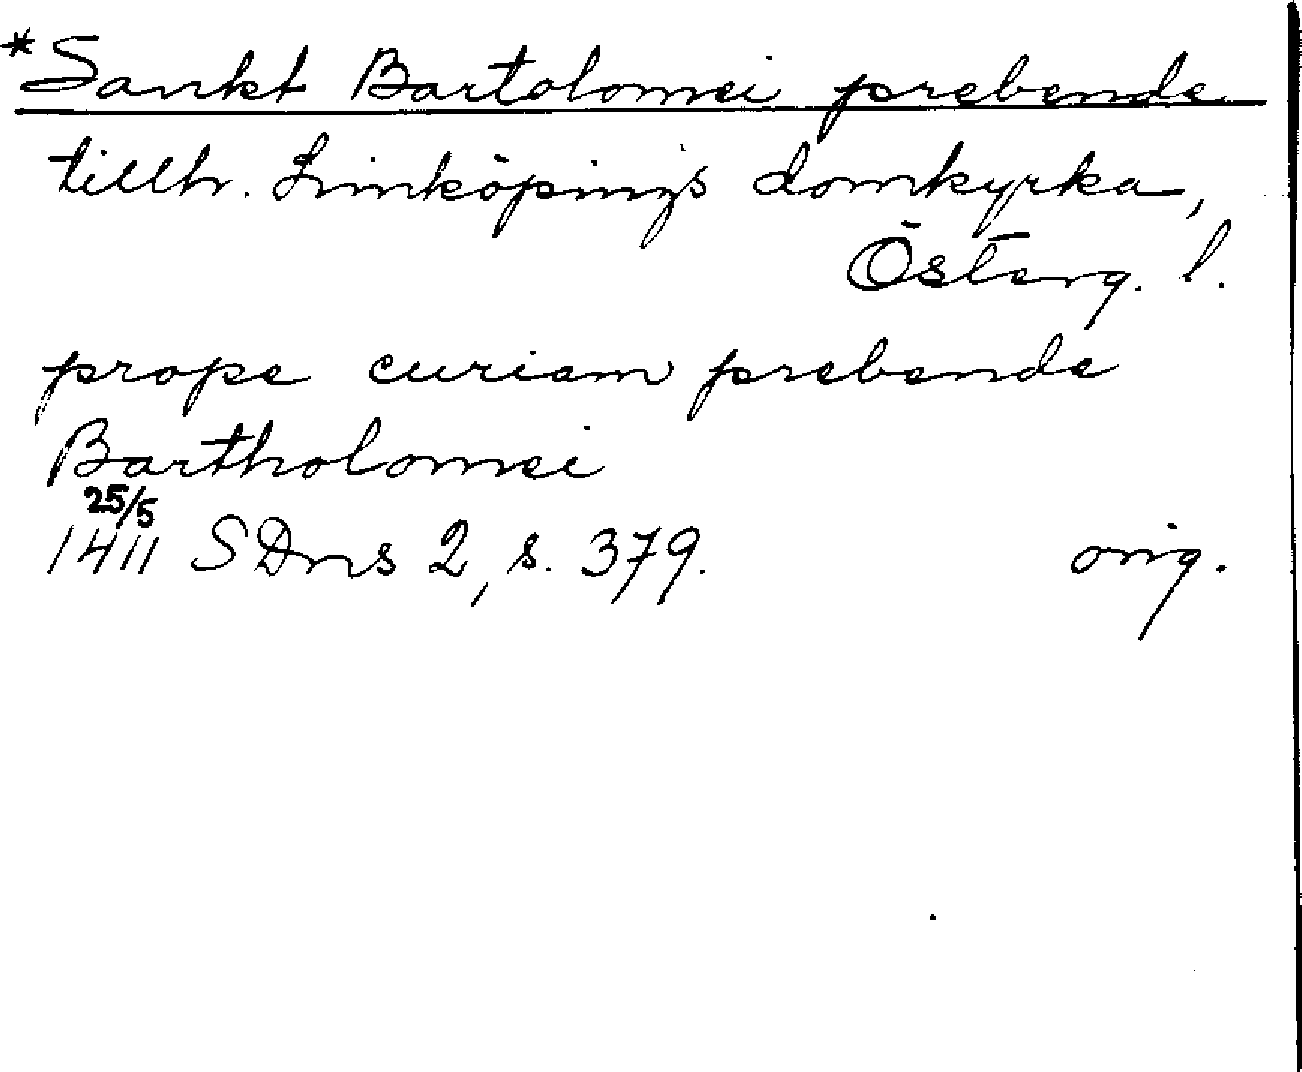 *Sankt Bartolomei prebende
tillhr. Linköpings domkyrka,
Österg. l.
prope curiam prebende
Bartholomei
25/5
1411 SDns 2, s. 379. orig.